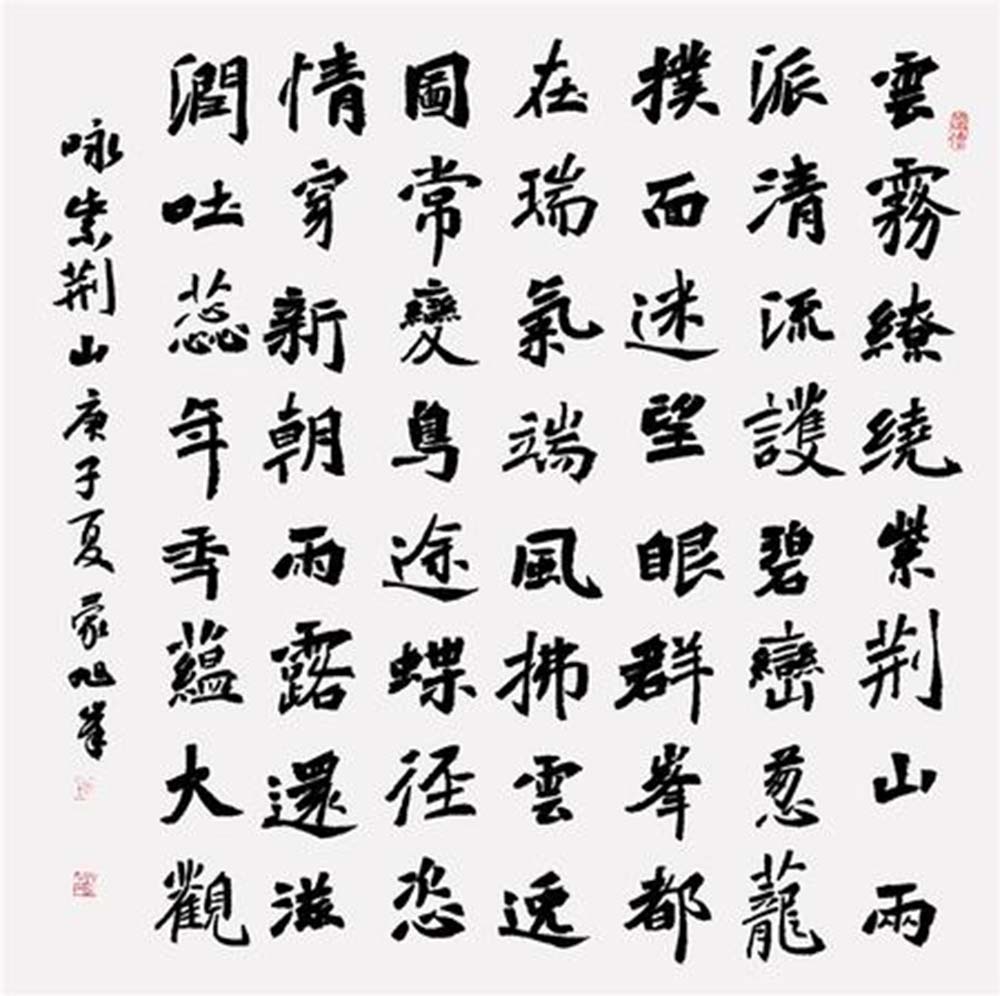 雲霧繚繞紫荆山兩
派清流護碧巒葱蘢
撲面迷望眼群峯都
在瑞氣端風拂雲逸
圖常變鳥途蝶徑恣
情穿新朝雨露還滋
潤吐蕊年年蘊大觀
咏紫荆山庚子夏蒙旭峯